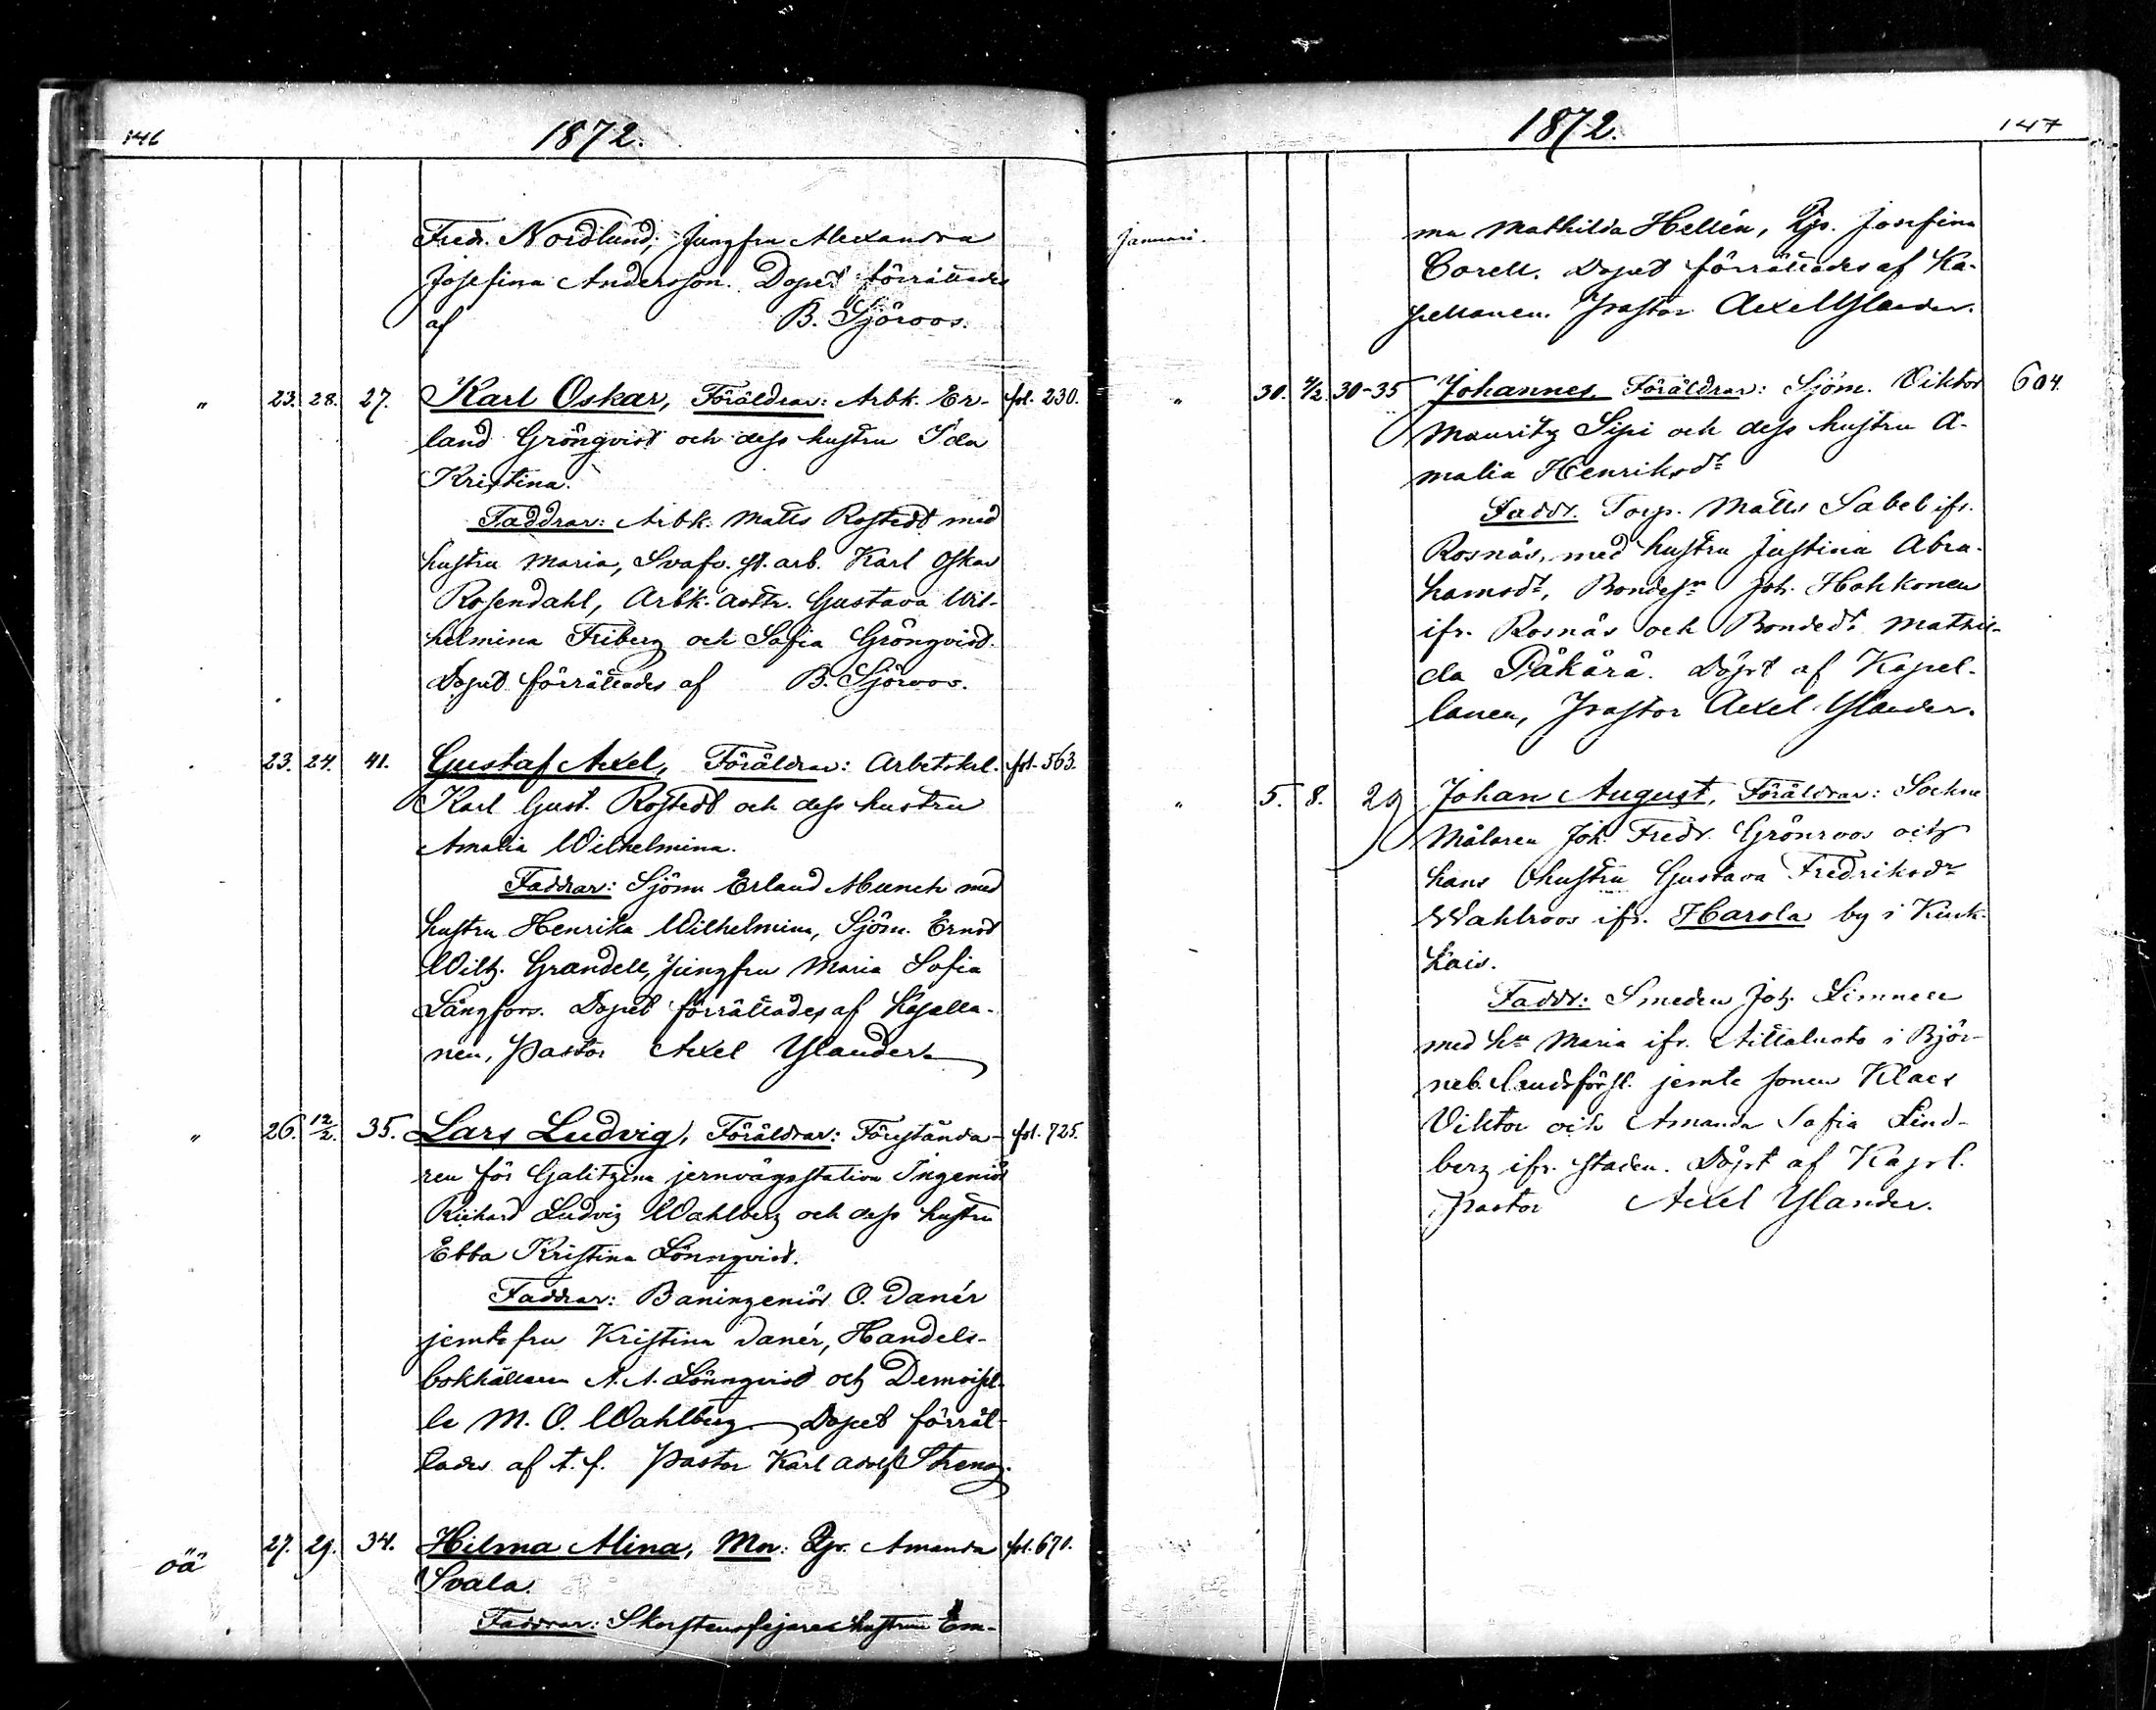 146
1872.
Fredr. Nordlund; Jungfru Alexandra
Josefina Andersson. Dopet förrättades
af B. Sjöroos.
" 23. 28. 27. Karl Oskar, Föräldrar: Arbk. Er- fol. 230.
land Grönqvist och dess hustru Ida
Kristina.
Faddrar: Arbk. Matts Rostedt med
hustru Maria, Svafv. st. arb. Karl Oskar
Rosendahl, Arbk. dottr. Gustava Wil-
helmina Friberg och Sofia Grönqvist.
Dopet förrättades af B. Sjöroos.
23. 24. 41. Gustaf Axel, Föräldrar: Arbetskl. fol. 563.
Karl Gust. Rostedt och dess hustru
Amalia Wilhelmina.
Faddrar: Sjöm. Erland Munch med
hustru Henrika Wilhelmina, Sjöm. Ernst
Wilh. Grandell, Jungfru Maria Sofia
Långfors. Dopet förrättades af Kapella-
nen, Pastor Axel Ylander.
" 26. 12/2. 35. Lars Ludvig, Föräldrar: Förestända- fol. 725.
ren för Galitzina jernvägsstation Ingeniör
Richard Ludvig Wahlberg och dess hustru
Ebba Kristina Lönnqvist.
Faddrar: Baningeniör O. Danér
jemte fru Kristina Danér, Handels-
bokhållaren A. A. Lönnqvist och Demoisel-
le M. O. Wahlberg. Dopet förrät-
tades af t. f. Pastor Karl Adolf Streng.
oä 27. 29. 34. Hilma Alina, Mor: Pjs. Amanda fol. 671.
Svala.
Faddrar: Skorstensfejarehustrun Em-
1872.
147
Januari.
ma Mathilda Hellén, Pjs. Josefina
Corell. Dopet förrättades af Ka-
pellanen. Pastor Axel Ylander.
" 30. 4/2. 30-35 Johannes. Föräldrar: Sjöm. Viktor 604.
Mauritz Sipi och dess hustru A-
malia Henriksdr
Faddr. Torp. Matts Sabel ifr.
Rosnäs, med hustru Justina Abra-
hamsdr, Bondesn Joh. Hohkonen
ifr. Rosnäs och Bondedr. Mathil-
da Päkärä. Döpt af Kapel-
lanen, Pastor Axel Ylander.
" 5. 8. 29 Johan August, Föräldrar: Sockne
Målaren Joh. Fredr. Grönroos och
hans hustru Gustava Fredriksdr
Wahlroos ifr. Harola by i Kiuk-
kais.
Faddr: Smeden Joh. Limnell
med hu Maria ifr. Aittaluoto i Björ-
neb. Landsförsl. jemte sonen Klaes
Viktor och Amanda Sofia Lind-
berg ifr. staden. Döpt af Kapel.
pastor Axel Ylander.